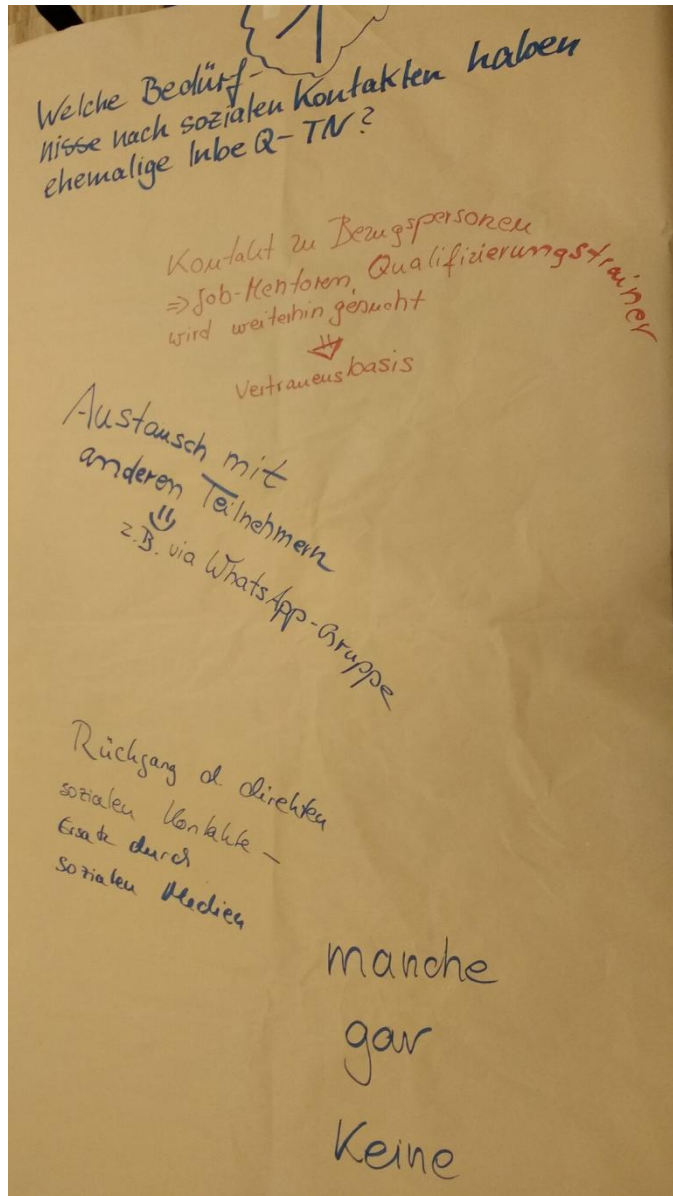 1
Welche Bedürf-
nisse nach sozialen Kontakten haben
ehemalige InbeQ-TN?
Kontakt zu Bezugspersonen
⇒ Job-Mentoren, Qualifizierungstrainer
wird weiterhin gesucht
⇓
Vertrauensbasis
Austausch mit
anderen Teilnehmern
⇓
z.B. via WhatsApp-Gruppe
Rückgang d. direkten
sozialen Kontakte –
Ersatz durch
sozialen Medien
manche
gar
Keine